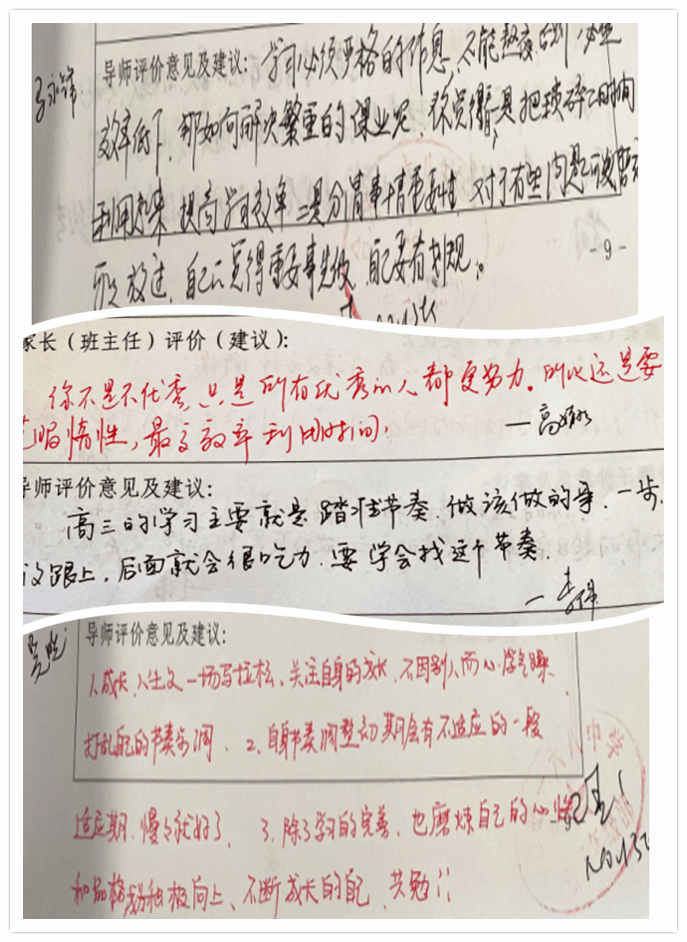 导师评价意见及建议: 学习必须严格的作息,不能熬夜
效率低下,那如何解决繁重的课业呢,你觉得,把琐碎的时间
利用起来,提高学习效率,二是分清事情重要性,对于有些问题可
放过,自己觉得重要事先做,自己要有判观。
- 9 -
家长(班主任)评价(建议):
你不是不优秀,只是所有优秀的人都更努力。所以还是要
克服惰性,最高效率利用时间!
导师评价意见及建议:
高三的学习主要就是踏准节奏,做该做的事,一步
没跟上,后面就会很吃力,要学会找这个节奏。
导师评价意见及建议:
1、成长、人生又一场马拉松,关注自身的成长,不因别人而心浮气躁
打乱自己的节奏步调、2、自身节奏调整初期会有不适应的一段
适应期,慢慢就好了、3、除了学习的完善,也磨炼自己的心性
和品格,积极向上、不断成长的自己,共勉!!